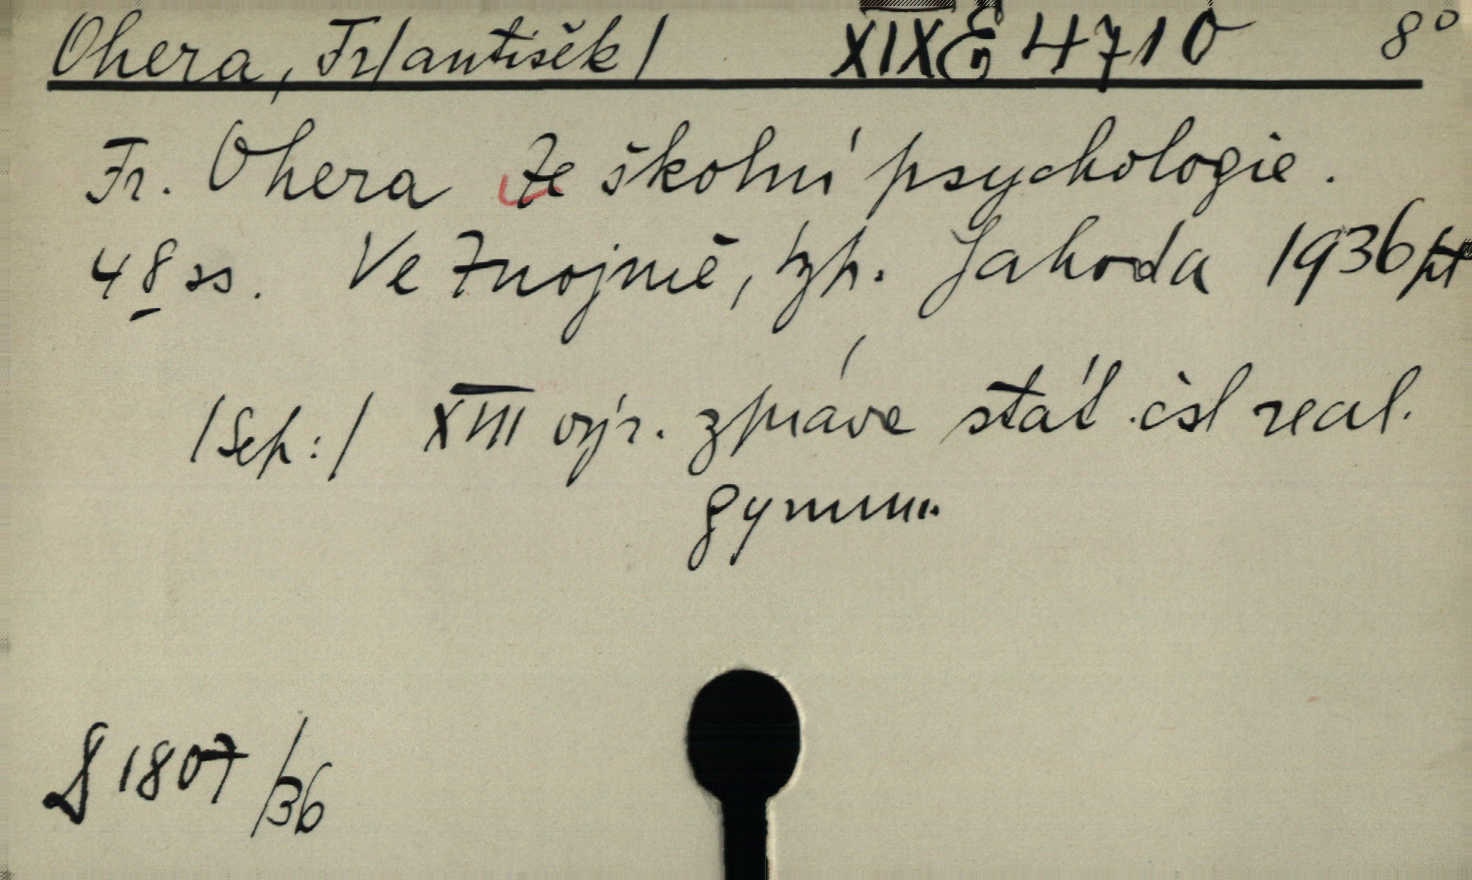 Ohera, Fr/antišek/ XIX E 4710 8°
Fr. Ohera Ze školní psychologie.
48 ss. Ve Znojmě, tzp. Jahoda 1936
/Sep:/ XVIII výr. zpráve stát. čsl real.
gymn.
§ 1807/36